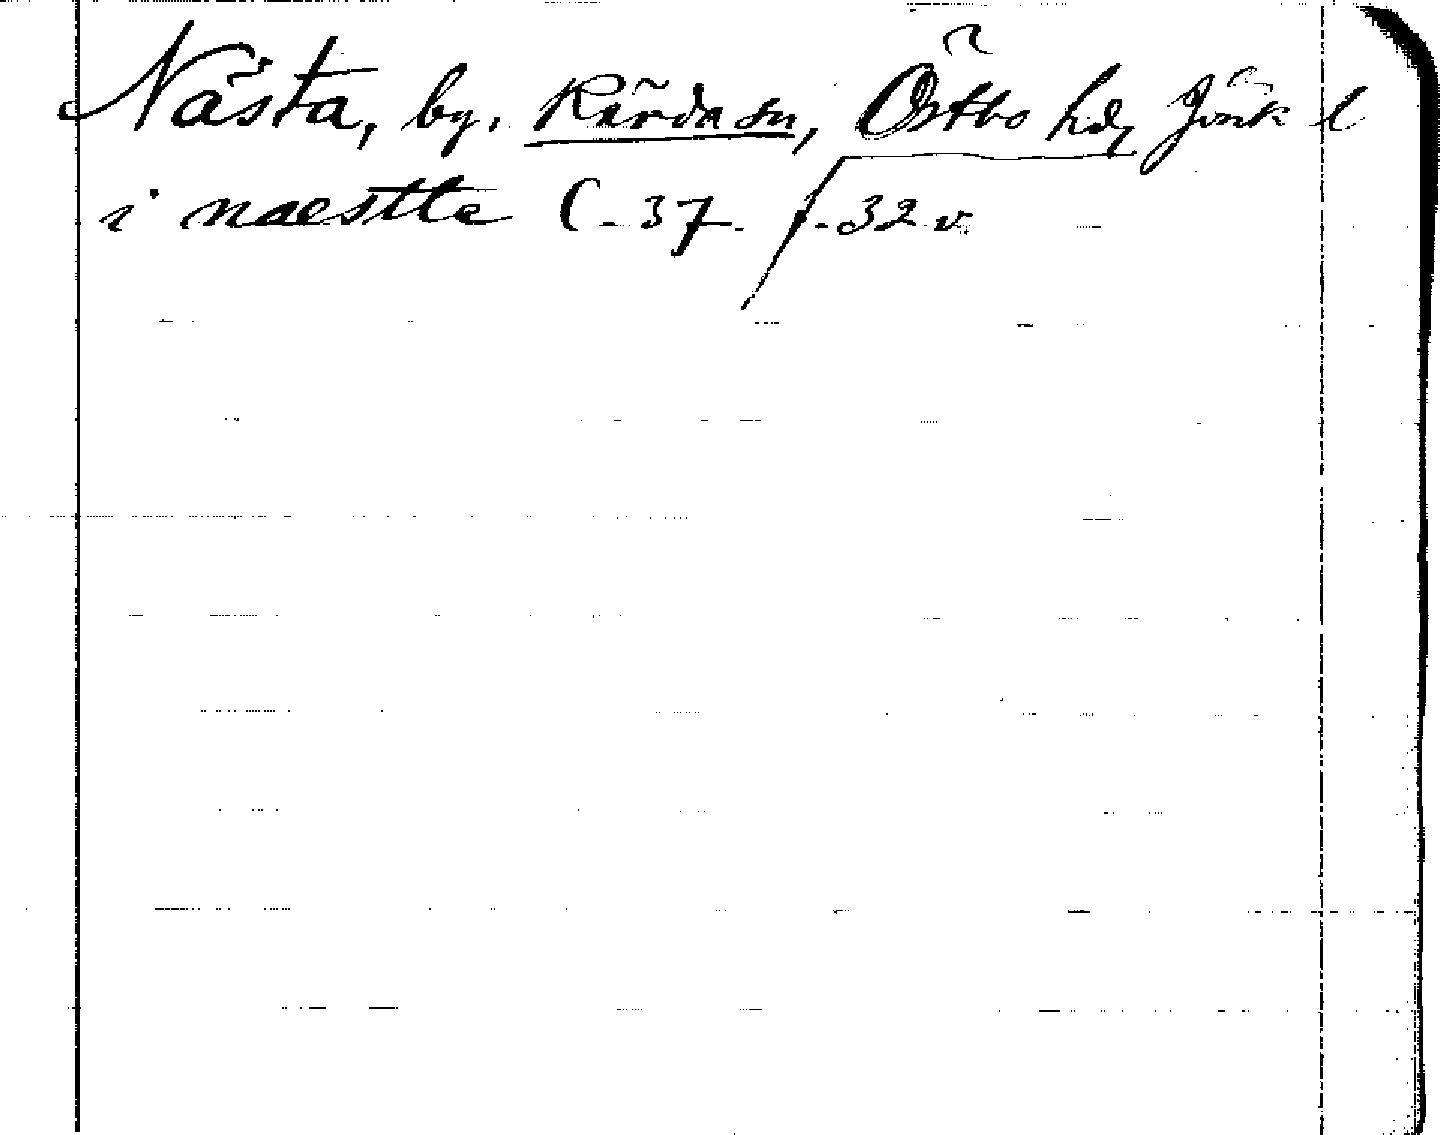 Nästa, by. Kärda sn, Östbo hd, Jönk l
i naestte C-37. f.32 v.